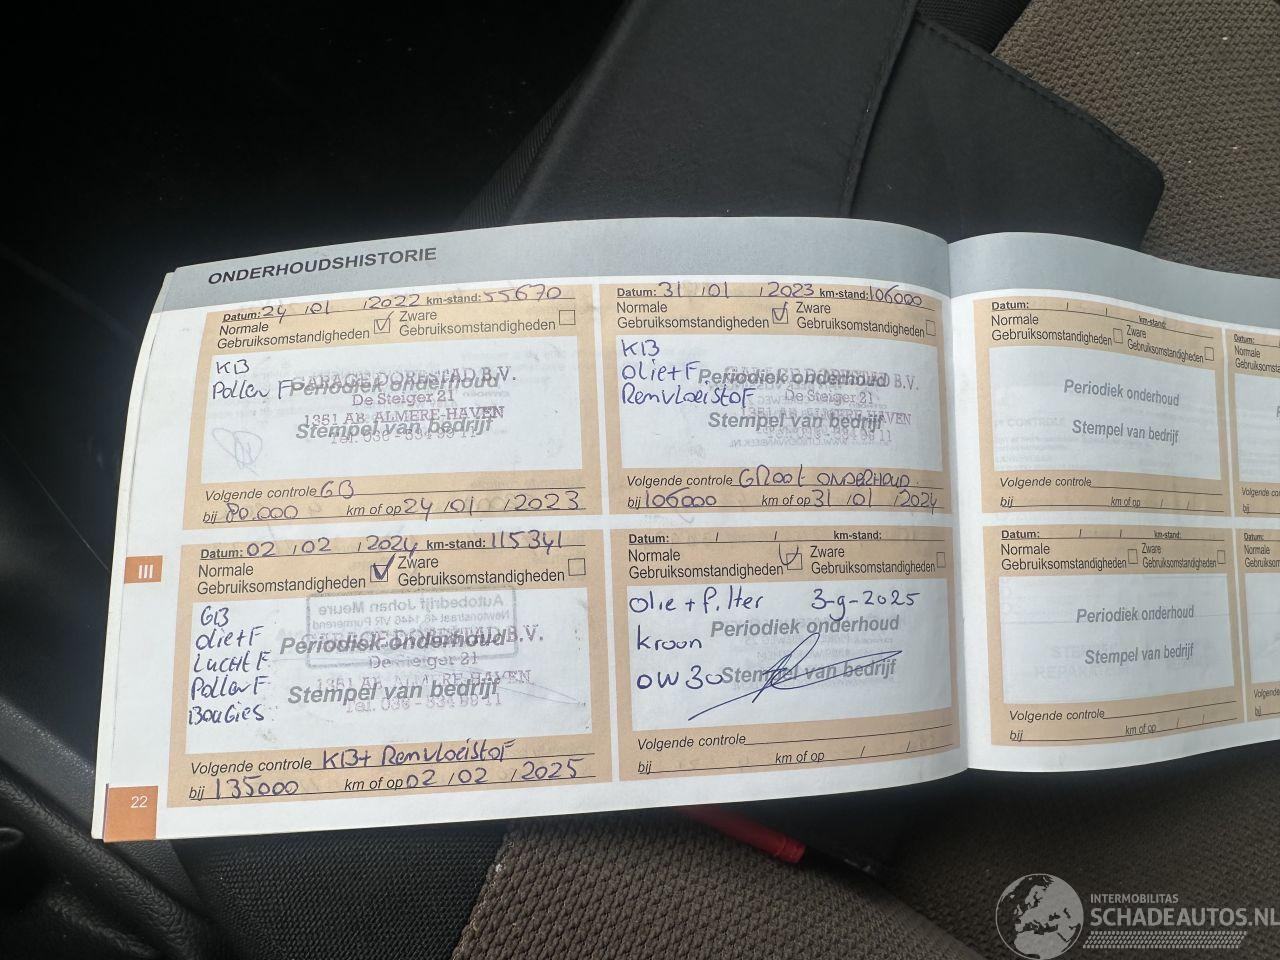 ONDERHOUDSHISTORIE
Datum: 24 / 01 / 2022 km-stand: 55670
Normale Gebruiksomstandigheden Zware Gebruiksomstandigheden
KB
Pollen F
Periodiek onderhoud
GARAGE DORESTAD B.V.
De Steiger 21
1351 AB ALMERE-HAVEN
Stempel van bedrijf
Volgende controle GB
bij 80.000 km of op 24 / 01 / 2023
Datum: 31 / 01 / 2023 km-stand: 106000
Normale Gebruiksomstandigheden Zware Gebruiksomstandigheden
KB
Olie+F.
Remvloeistof
Periodiek onderhoud
De Steiger 21
1351 AB ALMERE-HAVEN
Stempel van bedrijf
Volgende controle GRoot ONDERHOUD.
bij 106000 km of op 31 / 01 / 2024
Datum: 02 / 02 / 2024 km-stand: 115341
Normale Gebruiksomstandigheden Zware Gebruiksomstandigheden
GB
olie+F
Lucht F.
Pollen F
Bougies
Periodiek onderhoud
GARAGE DORESTAD B.V.
De Steiger 21
1351 AB ALMERE-HAVEN
Stempel van bedrijf
Volgende controle KB+ Remvloeistof
bij 135000 km of op 02 / 02 / 2025
Datum: / / km-stand:
Normale Gebruiksomstandigheden Zware Gebruiksomstandigheden
olie + filter 3-9-2025
kroon
Periodiek onderhoud
0W30
Stempel van bedrijf
Volgende controle
bij km of op / /
Datum: / / km-stand:
Normale Gebruiksomstandigheden Zware Gebruiksomstandigheden
Periodiek onderhoud
Stempel van bedrijf
Volgende controle
bij km of op / /
Datum: / / km-stand:
Normale Gebruiksomstandigheden Zware Gebruiksomstandigheden
Periodiek onderhoud
Stempel van bedrijf
Volgende controle
bij km of op / /
III
22
INTERMOBILITAS
SCHADEAUTOS.NL